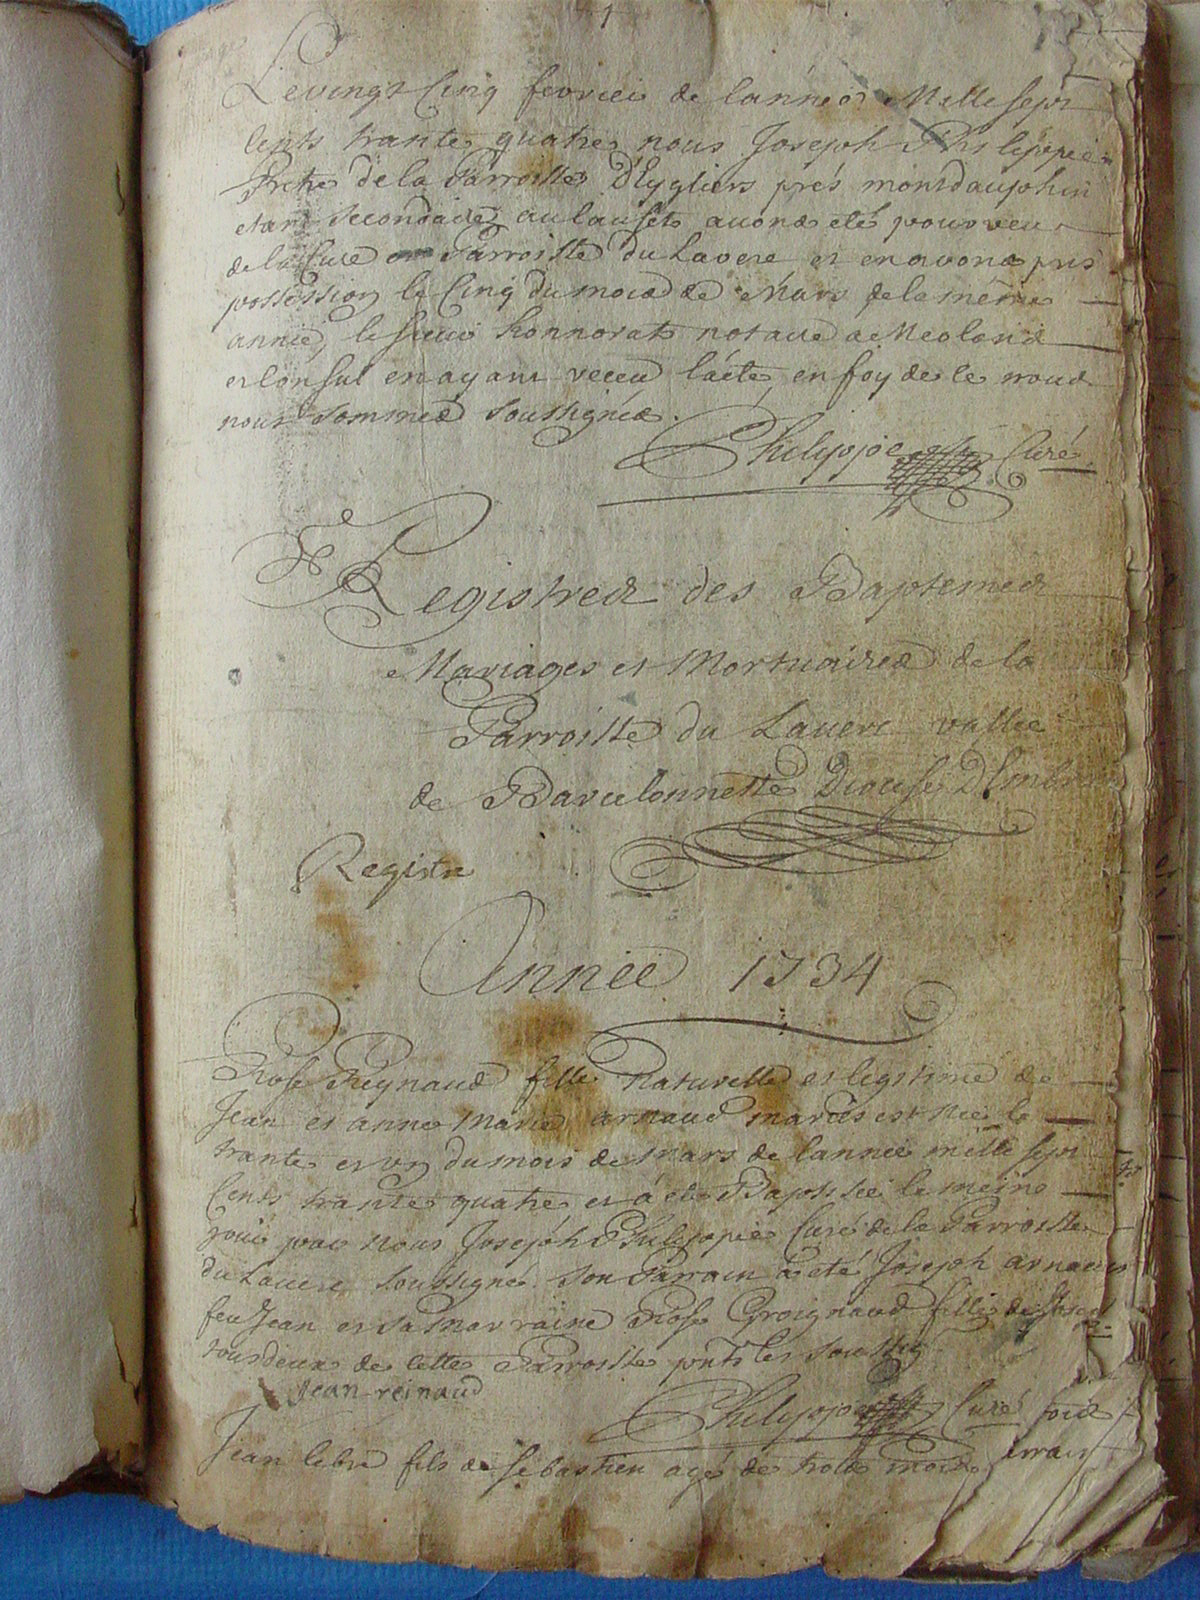 1
Le vingt Cinq fevrier de l'année Mille sept
Cents trante quatre nous Joseph Philippe
Prêtre de la Parroisse D'Eygliers prés montdauphin
etant secondaire au lauset avons eté pourveu
de la Cure et Parroisse du Laverc et en avons pris
possession le Cinq du mois de Mars de la même
année, le sieur honnorat notaire de Meolans
et Consul en ayant receu l'acte, en foy de le nous
nous sommes soussignés.
Philippe Curé
Registres des Baptemes
Mariages et Mortuaires de la
Parroisse du Laverc vallée
de Barcelonnette Diocese D'Embrun
Registre
Année 1734
Rose Reynaud fille Naturelle et legitime de
Jean et anne Marie arnaud mariés est née le
trante et un du mois de mars de l'annee mille sept
Cents trante quatre et a eté Baptisée le meme
jour par nous Joseph Philippe Curé de la Parroisse
du Laverc soussigné. son Parrain a eté Joseph arnaud
feu Jean et sa marraine Rose Groignaud fille de
tous deux de cette Parroisse pnts les soussig
Jean reinaud
Philippe Curé
Jean fils de sebastien agé de trois mois